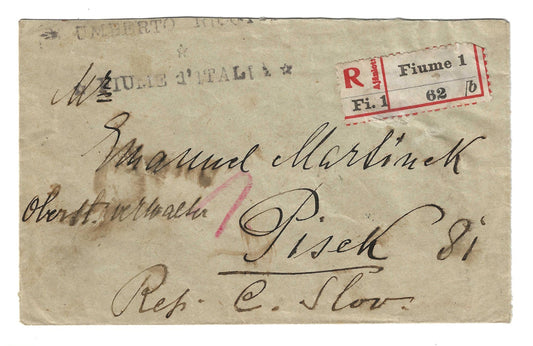 UMBERTO
☆
FIUME d'ITALIA ☆
R Ajánlott Fiume 1
Fi. 1 62 /b
Mr
Emanuel Martinek
Pisek 81
Rep. C. Slov.